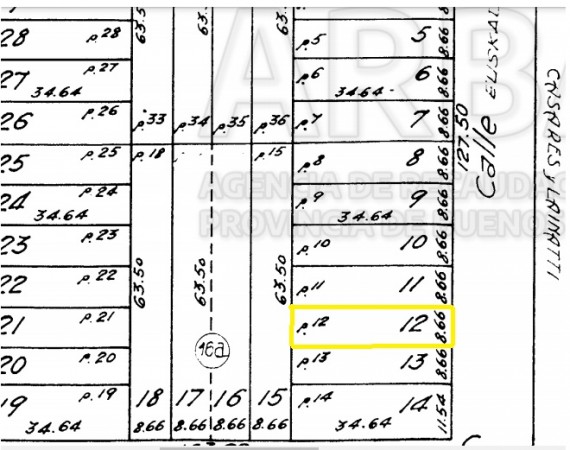 28 p.28 63.50 63.5 p5 5 8.66
27 p.27 34.64 p6 6 34.64 8.66
26 p.26 p.33 p.34 p.35 p.36 p.7 7 8.66
25 p.25 p.18 p.15 p.8 8 8.66
24 p.24 34.64 p.9 9 34.64 8.66
23 p.23 p.10 10 8.66
22 p.22 63.50 63.50 63.50 p.11 11 8.66
21 p.21 p.12 12 8.66
20 p.20 16a p.13 13 8.66
19 p.19 34.64 18 17 16 15 p.14 14 11.54
8.66 8.66 8.66 8.66 34.64
127.50
Calle EUSKAL
CASARES Y LAIMATTI
ARB
AGENCIA DE RECAUDA
PROVINCIA DE BUENOS